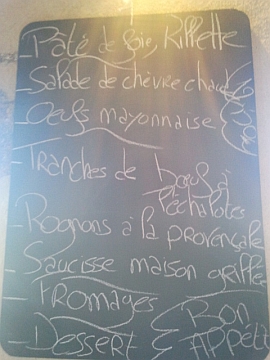 - Pâté de foie, Rillette
- Salade de chèvre chaud
- Oeufs mayonnaise
- Tranches de boeuf à
l'échalotes
- Rognons à la provençale
- Saucisse maison griffée
- Fromages
- Dessert
Bon
Appétit